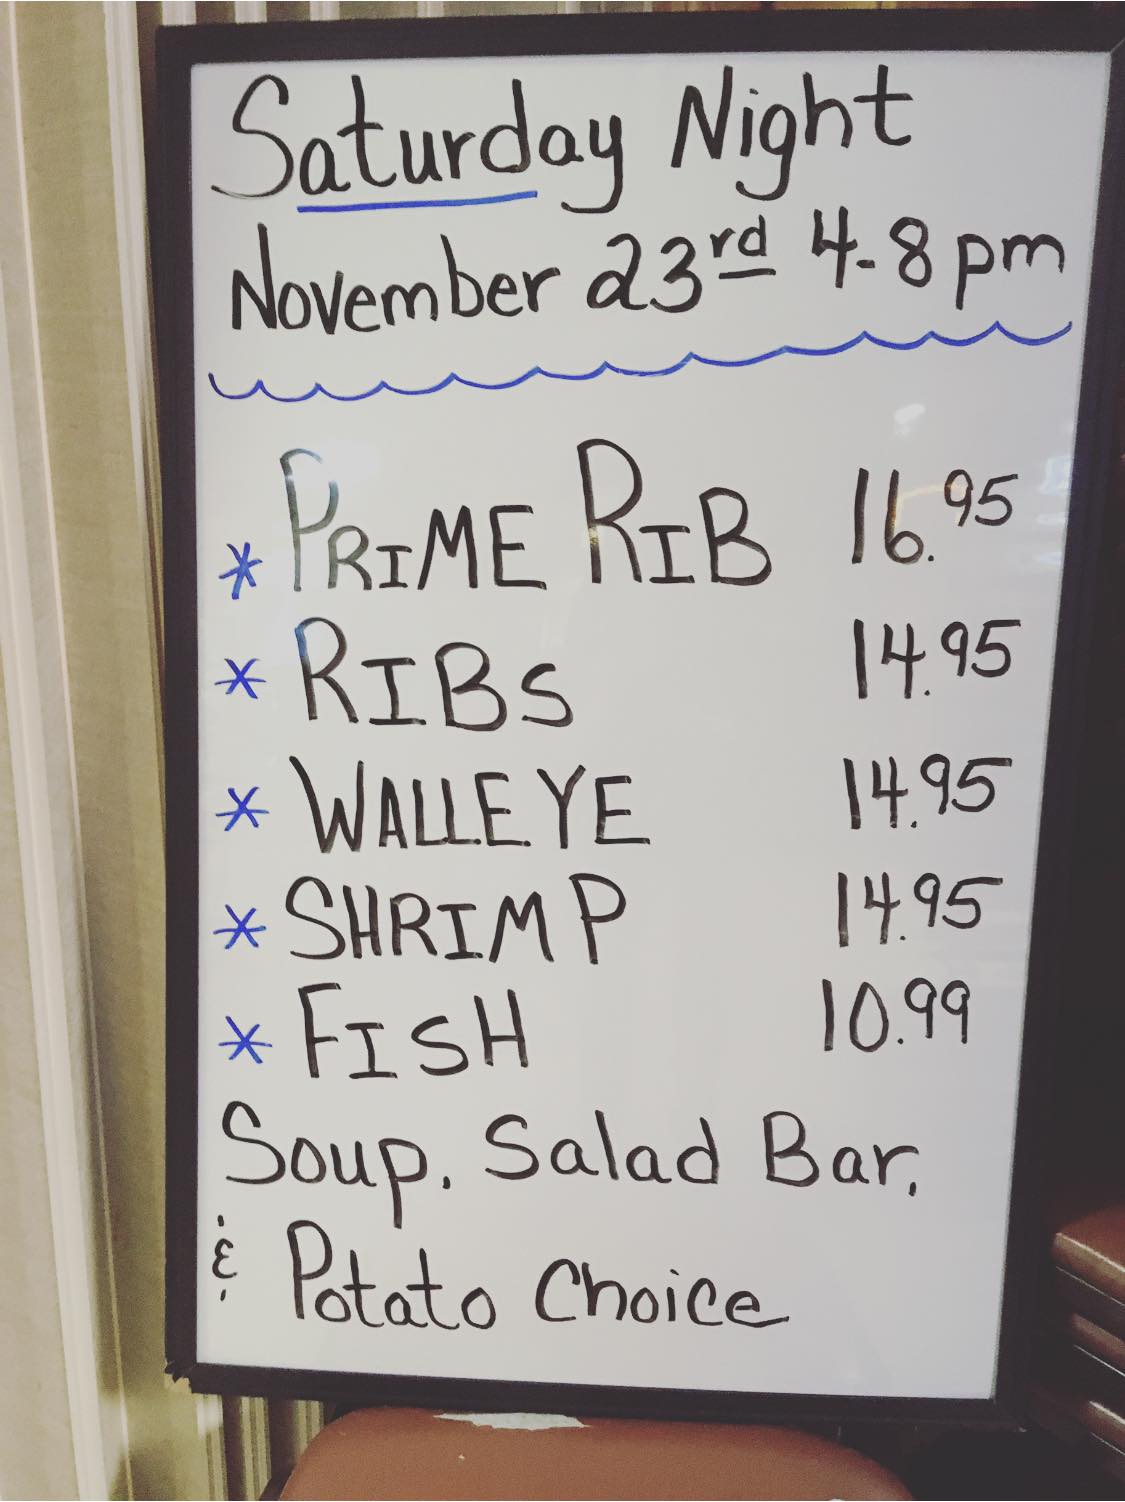 Saturday Night
November 23rd 4-8pm
* PRIME RIB 16.95
* RIBS 14.95
* WALLEYE 14.95
* SHRIMP 14.95
* FISH 10.99
Soup, Salad Bar,
& Potato Choice